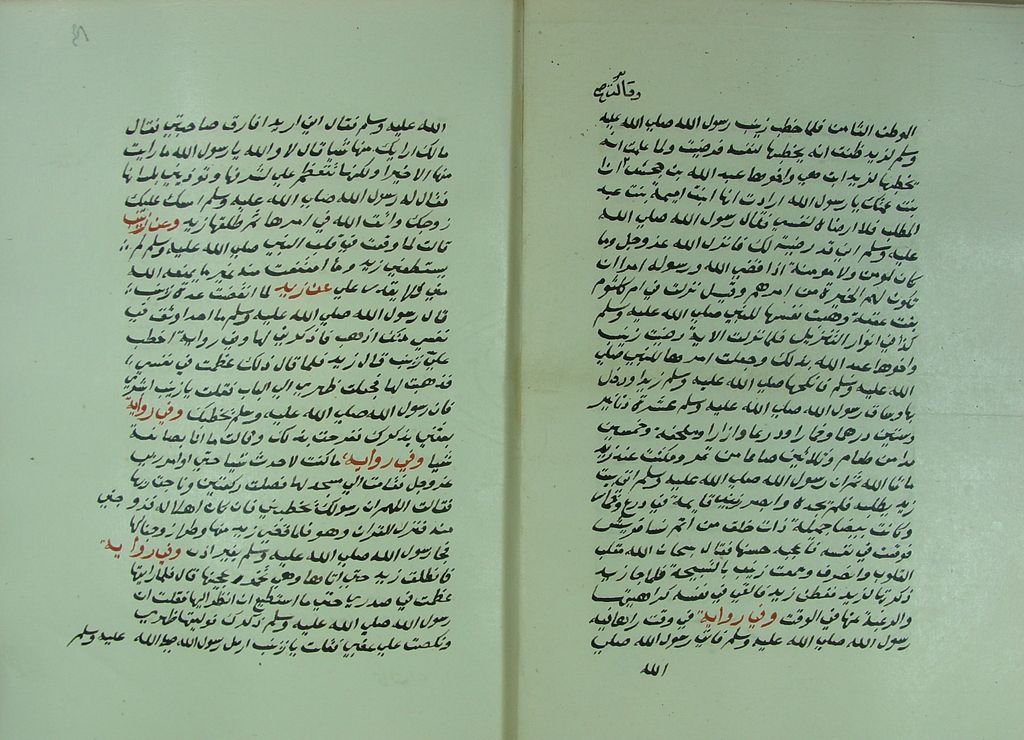 وقالت
الموطن الثامن فلما خطب زينب رسول الله صلى الله عليه
وسلم لزيد ظنت انه يخطبها لنفسه فرضيت ولما علمت انه
يخطبها لزيد ابت هي واخوها عبد الله بن جحش انا
بنت عمتك يا رسول الله ارادت انها ابنت اميمة بنت عبد
المطلب فلا ارضاه لنفسي فقال رسول الله صلى الله
عليه وسلم اني قد رضيته لك فانزل الله عز وجل وما
كان لمومن ولا مومنة اذا قضى الله ورسوله امرا ان
تكون لهم الخيرة من امرهم وقيل نزلت في ام كلثوم
بنت عقبة وهبت نفسها للنبي صلى الله عليه وسلم
كذا في انوار التنزيل فلما نزلت الاية رضيت زينب
واخوها عبد الله بذلك وجعلت امرها للنبي صلى
الله عليه وسلم فانكحها صلى الله عليه وسلم زيدا ودخل
بها وساق رسول الله صلى الله عليه وسلم عشرة دنانير
وستين درهما وخمارا ودرعا وازارا وملحفة وخمسين
مدا من طعام وثلاثين صاعا من تمر ومكثت عنده زينب
ما شا الله ثم ان رسول الله صلى الله عليه وسلم اتى بيت
زيد يطلبه فلم يجده وابصر زينب قايمة في درع وخمار
وكانت بيضا جميلة ذات خلق من اتم نسا قريش
فوقعت في نفسه فاعجبه حسنها فقال سبحان الله مقلب
القلوب وانصرف وسمعت زينب بالتسبيحة فلما جا زيد
ذكرتها لزيد ففطن زيد فالقي في نفسه كراهيتها
والرغبة عنها في الوقت وفي رواية في وقت راها فاتى
رسول الله صلى الله عليه وسلم فاتى رسول الله صلى
الله
الله عليه وسلم فقال اني اريد افارق صاحبتي فقال
مالك ارابك منها شيا قال لا والله يا رسول الله ما رايت
منها الا خيرا ولكنها تتعظم علي لشرفها وتوذيني بلسانها
فقال له رسول الله صلى الله عليه وسلم امسك عليك
زوجك واتق الله في امرها ثم طلقها زيد وعن زينب
قالت لما وقعت في قلب النبي صلى الله عليه وسلم لم
يستطعني زيد وما امتنعت منه غير ما يمنعه الله
مني فلا يقدر علي عن زيد لما انقضت عدة زينب
قال رسول الله صلى الله عليه وسلم ما اجد اوثق في
نفسي منك اذهب فاذكرني لها وفي رواية اخطب
علي زينب قال زيد فلما قال ذلك عظمت في نفسي
فذهبت لها فجعلت ظهري الى الباب فقلت يا زينب ابشري
فان رسول الله صلى الله عليه وسلم يخطبك وفي رواية
بعثني يذكرك ففرحت بذلك وقالت ما انا بصانعة
شيا وفي رواية ما كنت لاحدث شيا حتى اوامر ربي
عز وجل فقامت الى مسجد لها فصلت ركعتين وناجت ربها
فقالت اللهم ان رسولك يخطبني فان كنت اهلا له فزوجني
منه فنزل القران وهو فلما قضى زيد منها وطرا زوجناكها
فجا رسول الله صلى الله عليه وسلم بغير اذن وفي رواية
فانطلق زيد حتى اتاها وهي تخمر عجينها قال فلما رايتها
عظمت في صدري حتى ما استطيع ان انظر اليها فقلت ان
رسول الله صلى الله عليه وسلم ذكرك فوليتها ظهري
ونكصت على عقبي فقلت يا زينب ارسل رسول الله صلى الله عليه وسلم